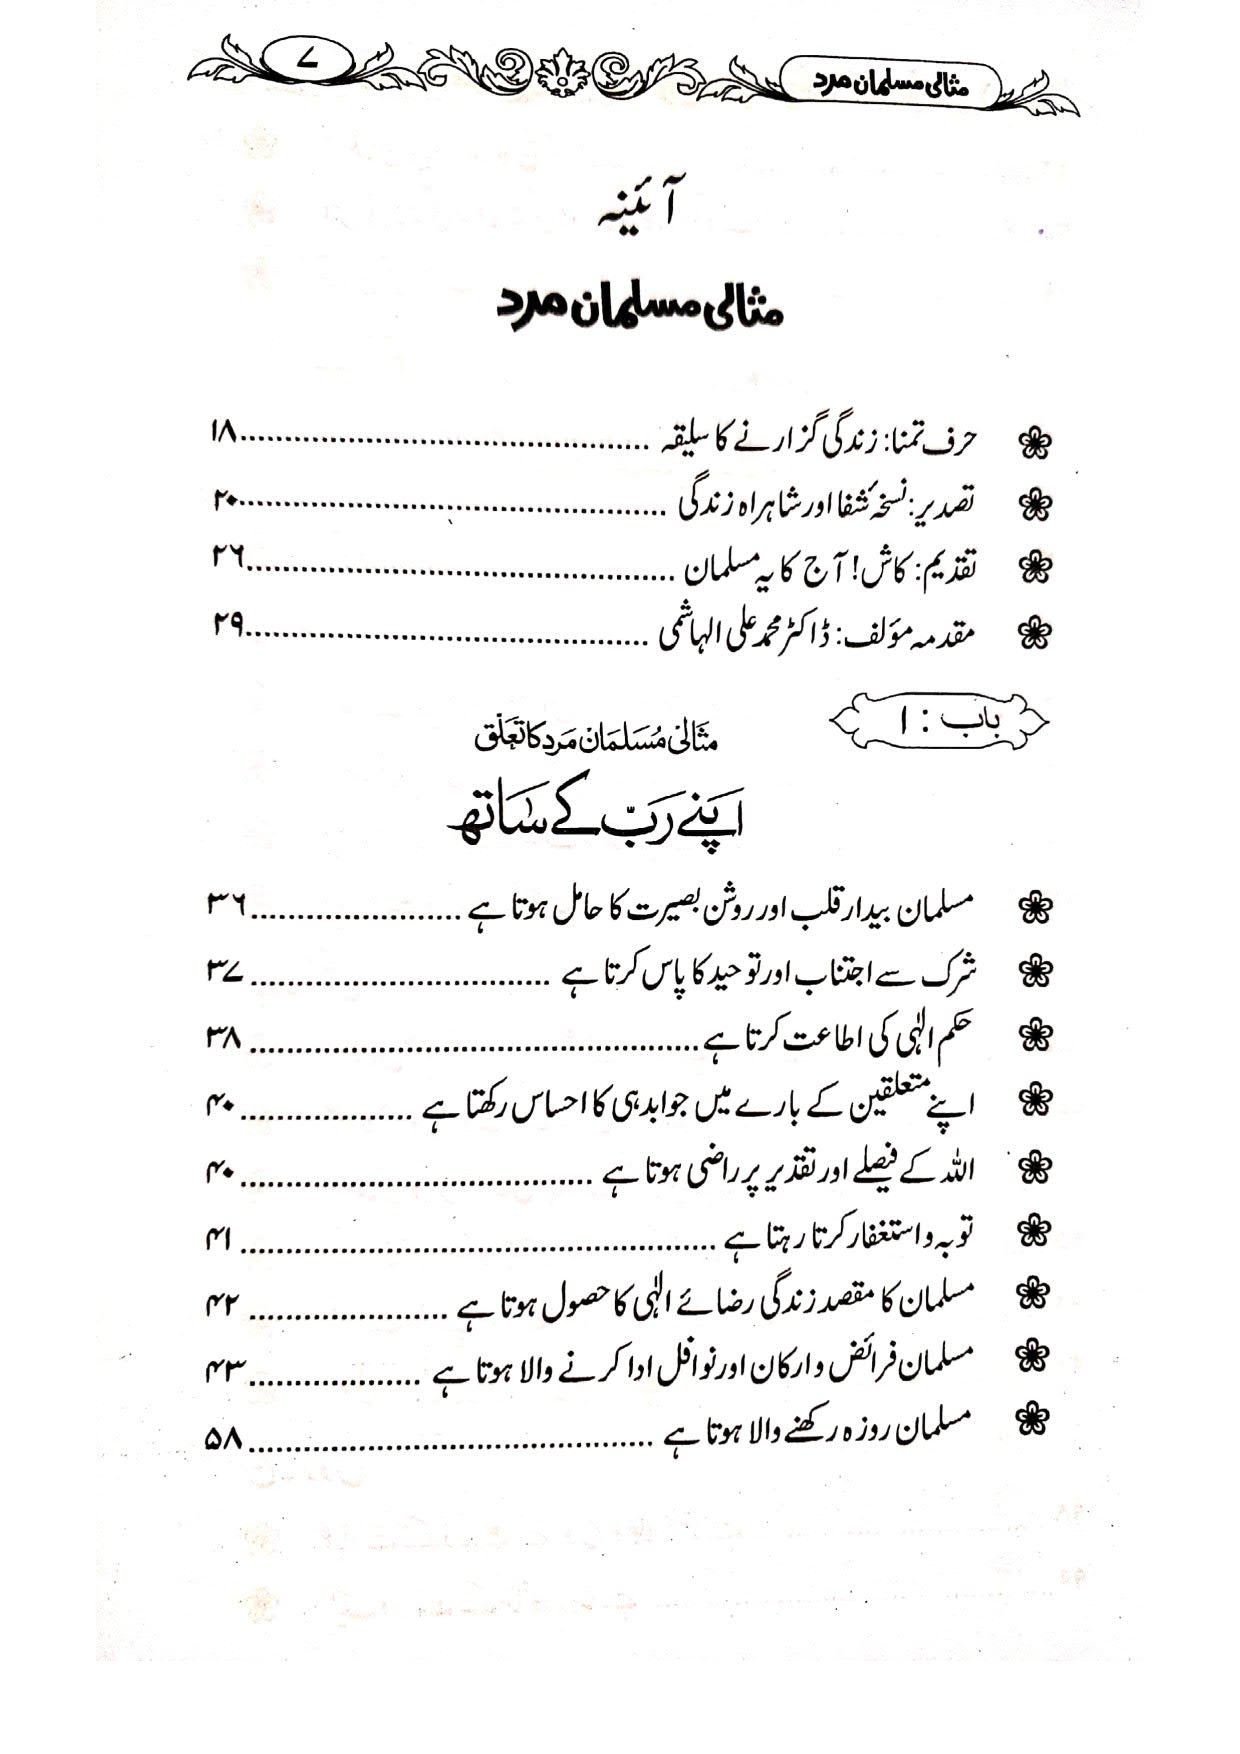 مثالی مسلمان مرد ۷
آئینہ
مثالی مسلمان مرد
حرف تمنا: زندگی گزارنے کا سلیقہ ........ ۱۸
تصدیر: نسخۂ شفا اور شاہراہ زندگی ........ ۲۰
تقدیم: کاش! آج کا یہ مسلمان ........ ۲۶
مقدمہ مؤلف: ڈاکٹر محمد علی الہاشمی ........ ۲۹
باب : ۱
مثالی مسلمان مرد کا تعلق
اپنے رب کے ساتھ
مسلمان بیدار قلب اور روشن بصیرت کا حامل ہوتا ہے ........ ۳۶
شرک سے اجتناب اور توحید کا پاس کرتا ہے ........ ۳۷
حکم الٰہی کی اطاعت کرتا ہے ........ ۳۸
اپنے متعلقین کے بارے میں جوابدہی کا احساس رکھتا ہے ........ ۴۰
اللہ کے فیصلے اور تقدیر پر راضی ہوتا ہے ........ ۴۰
توبہ و استغفار کرتا رہتا ہے ........ ۴۱
مسلمان کا مقصد زندگی رضائے الٰہی کا حصول ہوتا ہے ........ ۴۲
مسلمان فرائض و ارکان اور نوافل ادا کرنے والا ہوتا ہے ........ ۴۳
مسلمان روزہ رکھنے والا ہوتا ہے ........ ۵۸